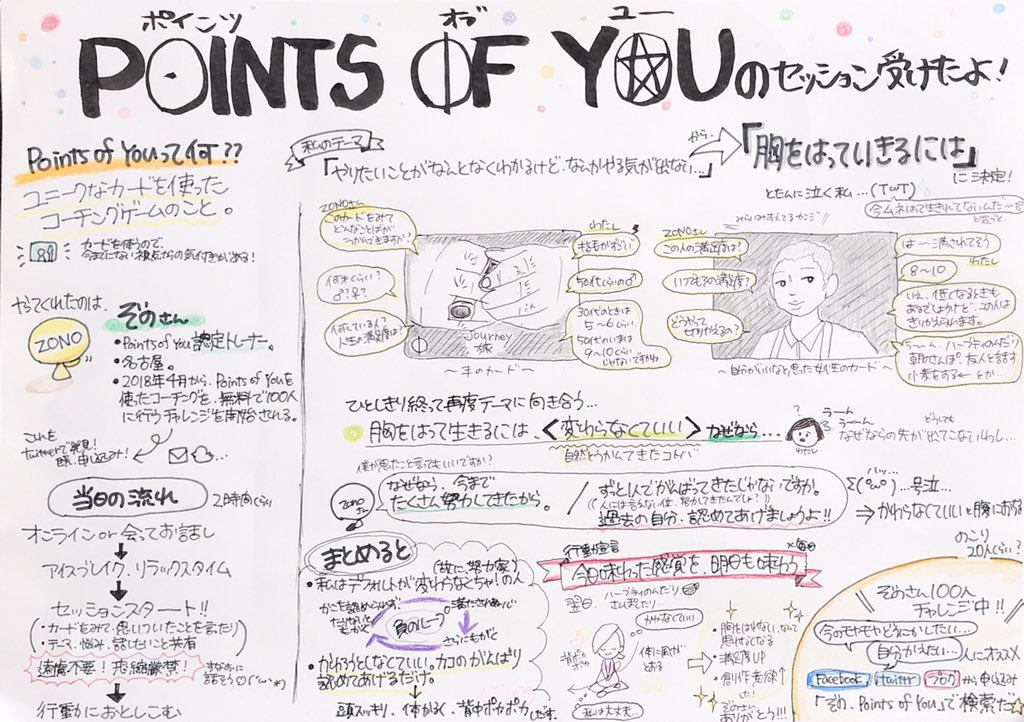 ポインツ オブ ユー
POINTS OF YOUのセッション受けたよ!
Points of Youって何??
ユニークなカードを使った
コーチングゲームのこと。
カードを使うので、
今までにない視点からの気付きがある!
やってくれたのは、
ZONO
ぞのさん
・Points of You認定トレーナー。
・名古屋。
・2018年4月から、Points of Youを
使ったコーチングを、無料で100人
に行うチャレンジを開始される。
これを
twitterで発見!
即、申し込み!
当日の流れ
2時間くらい
オンラインor会ってお話し
アイスブレイク、リラックスタイム
セッションスタート!!
・カードをみて思いついたことを言たり
・テーマ、悩み、話したいこと共有
遠慮不要!恐縮厳禁!
すなおに
話そう
行動におとしこむ
私のテーマ
「やりたいことがなんとなくわかるけど、なんかやる気が出ない…」
から、
「胸をはっていきるには」
に決定!
とたんに泣く私…(TwT)
今ムネはって生きれてないんだー
と気づく。
ZONOさん
このカードをみて
どんなことばが
うかんできますか?
わたし
指もがずらい
何才くらい?
♂?♀?
50代くらいの♂
何している人?
人生の満足度は?
30代のときは
5〜6くらい
50代のいまは
9〜10くらい
じゃないですかね
Journey
旅
〜手のカード〜
みらいはみすえてるカンジ
ZONOさん
この人の満足度は?
は〜満されてそう
わたし
いつもその満足度?
8〜10
どうやって
きりかえるの?
いえ、低くなるときも
あるでしょうけど、この人は
きりかえらいます。
うーん、ハーブティのんだり
朝のさんぽ。友人と話す
小旅をする←とか…
〜自分がいいなと思った女性のカード〜
ひとしきり終って再度テーマに向き合う…
胸をはって生きるには、<変わらなくていい>なぜなら…
自然とうかんできたコトバ
?
わたし
うーん
うーーん
どうしても
なぜならの先が出てこないわたし…
僕が思ったこと言ってもいいですか?
ZONOさん
なぜなら、今まで
たくさん努力してきたから。
ずっと1人でがんばってきたじゃないですか。
(人には言えない位、努力してきたんでしょ?)
過去の自分、認めてあげましょうよ!!
ハッ…
Σ(°ω°)…号泣…
⇒かわらなくていいと腹におちる
まとめると
(故に、努力家)
・私はデフォルトが変わらなくちゃ!の人
かこを認めれらず、
ただひたすら
もがく
負のループ
満たされない
さらにもがく
・かわろうとしなくていい!カコのがんばり
認めてあげるだけ。
頭スッキリ、体かるく、背中ポカポカです。
行動宣言
×毎日
今日味わった感覚を、明日も味わう
翌日、
ハーブティのんだり
さんぽたり…
かわらなくていい
背中
ポカポカ
体に風が
とおる
私は大丈夫…
・胸をはれない、なんて
思わなくなる
・満足度UP
・創作意欲↑
した!
ぞのさん
ありがとう!!!
のこり
20人くらい?
ぞのさん100人
チャレンジ中!!
今のモヤモヤどうにかしたい…
自分かえたい…
人にオススメ
Facebook
twitter
ブログ
から申込み
「ぞの、Points of You」で検索だ☆